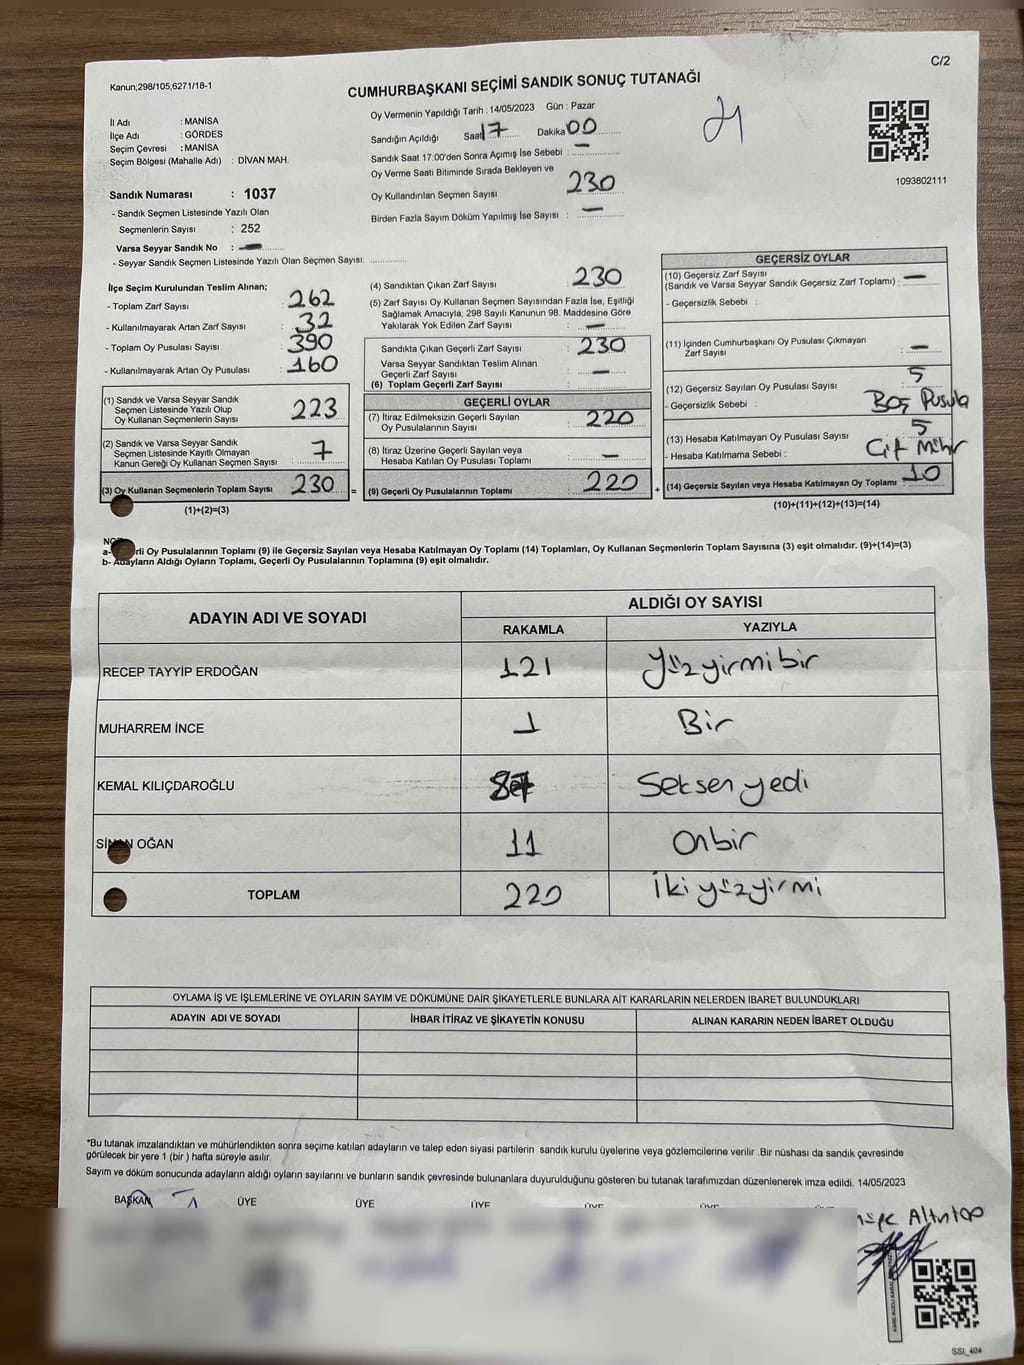 Kanun;298/105,6271/18-1
C/2
CUMHURBAŞKANI SEÇİMİ SANDIK SONUÇ TUTANAĞI
İl Adı : MANİSA
İlçe Adı : GÖRDES
Seçim Çevresi : MANİSA
Seçim Bölgesi (Mahalle Adı) : DİVAN MAH.
Sandık Numarası : 1037
- Sandık Seçmen Listesinde Yazılı Olan
Seçmenlerin Sayısı : 252
Varsa Seyyar Sandık No : —
- Seyyar Sandık Seçmen Listesinde Yazılı Olan Seçmen Sayısı:
Oy Vermenin Yapıldığı Tarih : 14/05/2023 Gün : Pazar
Sandığın Açıldığı Saat 17 Dakika 00
Sandık Saat 17:00'den Sonra Açımış İse Sebebi : —
Oy Verme Saati Bitiminde Sırada Bekleyen ve
Oy Kullandırılan Seçmen Sayısı 230
Birden Fazla Sayım Döküm Yapılmış İse Sayısı : —
21
1093802111
İlçe Seçim Kurulundan Teslim Alınan;
- Toplam Zarf Sayısı : 262
- Kullanılmayarak Artan Zarf Sayısı : 32
- Toplam Oy Pusulası Sayısı : 390
- Kullanılmayarak Artan Oy Pusulası : 160
(1) Sandık ve Varsa Seyyar Sandık
Seçmen Listesinde Yazılı Olup
Oy Kullanan Seçmenlerin Sayısı : 223
(2) Sandık ve Varsa Seyyar Sandık
Seçmen Listesinde Kayıtlı Olmayan
Kanun Gereği Oy Kullanan Seçmen Sayısı : 7
(3) Oy Kullanan Seçmenlerin Toplam Sayısı : 230 =
(1)+(2)=(3)
(4) Sandıktan Çıkan Zarf Sayısı : 230
(5) Zarf Sayısı Oy Kullanan Seçmen Sayısından Fazla İse, Eşitliği
Sağlamak Amacıyla; 298 Sayılı Kanunun 98. Maddesine Göre
Yakılarak Yok Edilen Zarf Sayısı : —
Sandıkta Çıkan Geçerli Zarf Sayısı : 230
Varsa Seyyar Sandıktan Teslim Alınan
Geçerli Zarf Sayısı : —
(6) Toplam Geçerli Zarf Sayısı :
GEÇERLİ OYLAR
(7) İtiraz Edilmeksizin Geçerli Sayılan
Oy Pusulalarının Sayısı : 220
(8) İtiraz Üzerine Geçerli Sayılan veya
Hesaba Katılan Oy Pusulası Toplamı : —
(9) Geçerli Oy Pusulalarının Toplamı : 220 +
GEÇERSİZ OYLAR
(10) Geçersiz Zarf Sayısı
(Sandık ve Varsa Seyyar Sandık Geçersiz Zarf Toplamı) : —
- Geçersizlik Sebebi :
(11) İçinden Cumhurbaşkanı Oy Pusulası Çıkmayan
Zarf Sayısı : —
(12) Geçersiz Sayılan Oy Pusulası Sayısı : 5
- Geçersizlik Sebebi : Boş Pusula
(13) Hesaba Katılmayan Oy Pusulası Sayısı : 5
- Hesaba Katılmama Sebebi : Çift Mühr
(14) Geçersiz Sayılan veya Hesaba Katılmayan Oy Toplamı : 10
(10)+(11)+(12)+(13)=(14)
a- Oy Pusulalarının Toplamı (9) ile Geçersiz Sayılan veya Hesaba Katılmayan Oy Toplamı (14) Toplamları, Oy Kullanan Seçmenlerin Toplam Sayısına (3) eşit olmalıdır. (9)+(14)=(3)
b- Adayların Aldığı Oyların Toplamı, Geçerli Oy Pusulalarının Toplamına (9) eşit olmalıdır.
ADAYIN ADI VE SOYADI ALDIĞI OY SAYISI
RAKAMLA YAZIYLA
RECEP TAYYİP ERDOĞAN 121 Yüzyirmibir
MUHARREM İNCE 1 Bir
KEMAL KILIÇDAROĞLU 87 Seksenyedi
SİNAN OĞAN 11 Onbir
TOPLAM 220 İkiyüzyirmi
OYLAMA İŞ VE İŞLEMLERİNE VE OYLARIN SAYIM VE DÖKÜMÜNE DAİR ŞİKAYETLERLE BUNLARA AİT KARARLARIN NELERDEN İBARET BULUNDUKLARI
ADAYIN ADI VE SOYADI İHBAR İTİRAZ VE ŞİKAYETİN KONUSU ALINAN KARARIN NEDEN İBARET OLDUĞU
*Bu tutanak imzalandıktan ve mühürlendikten sonra seçime katılan adayların ve talep eden siyasi partilerin sandık kurulu üyelerine veya gözlemcilerine verilir .Bir nüshası da sandık çevresinde
görülecek bir yere 1 (bir ) hafta süreyle asılır.
Sayım ve döküm sonucunda adayların aldığı oyların sayılarını ve bunların sandık çevresinde bulunanlara duyurulduğunu gösteren bu tutanak tarafımızdan düzenlenerek imza edildi. 14/05/2023
BAŞKAN ÜYE ÜYE ÜYE ÜYE ÜYE
SSI_404